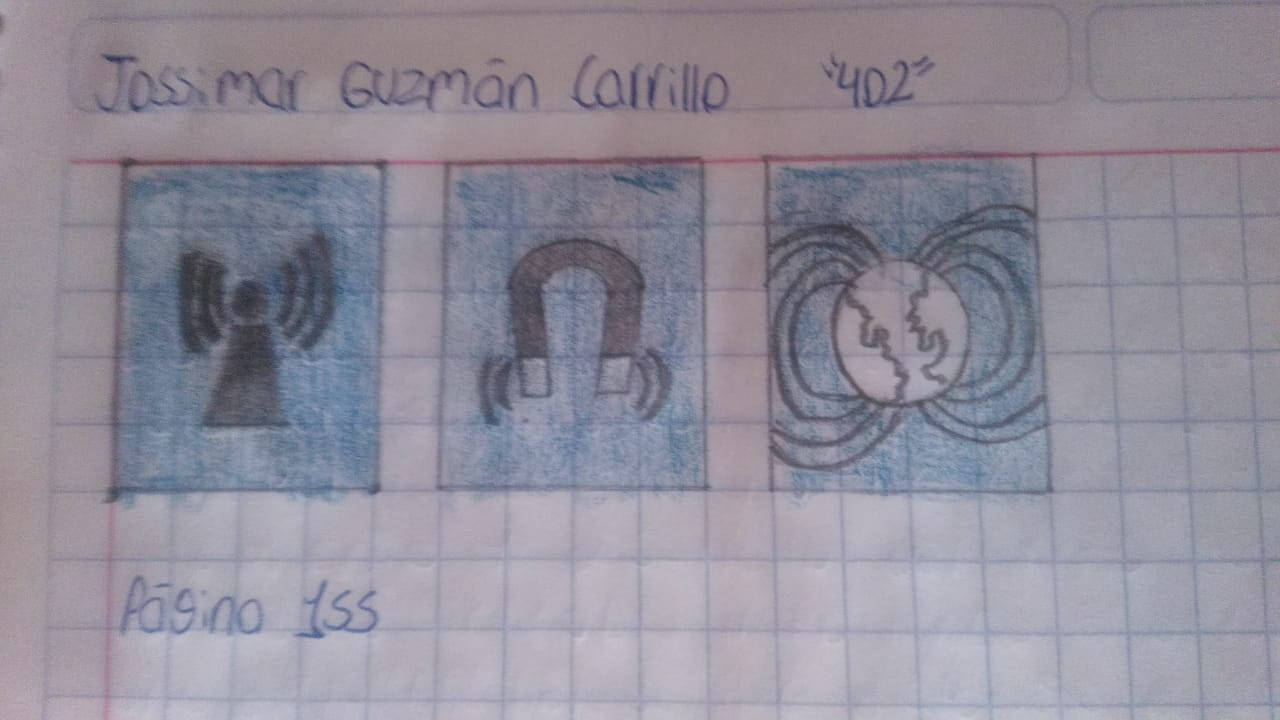 Jossimar Guzmán Carrillo "402"
Página 155